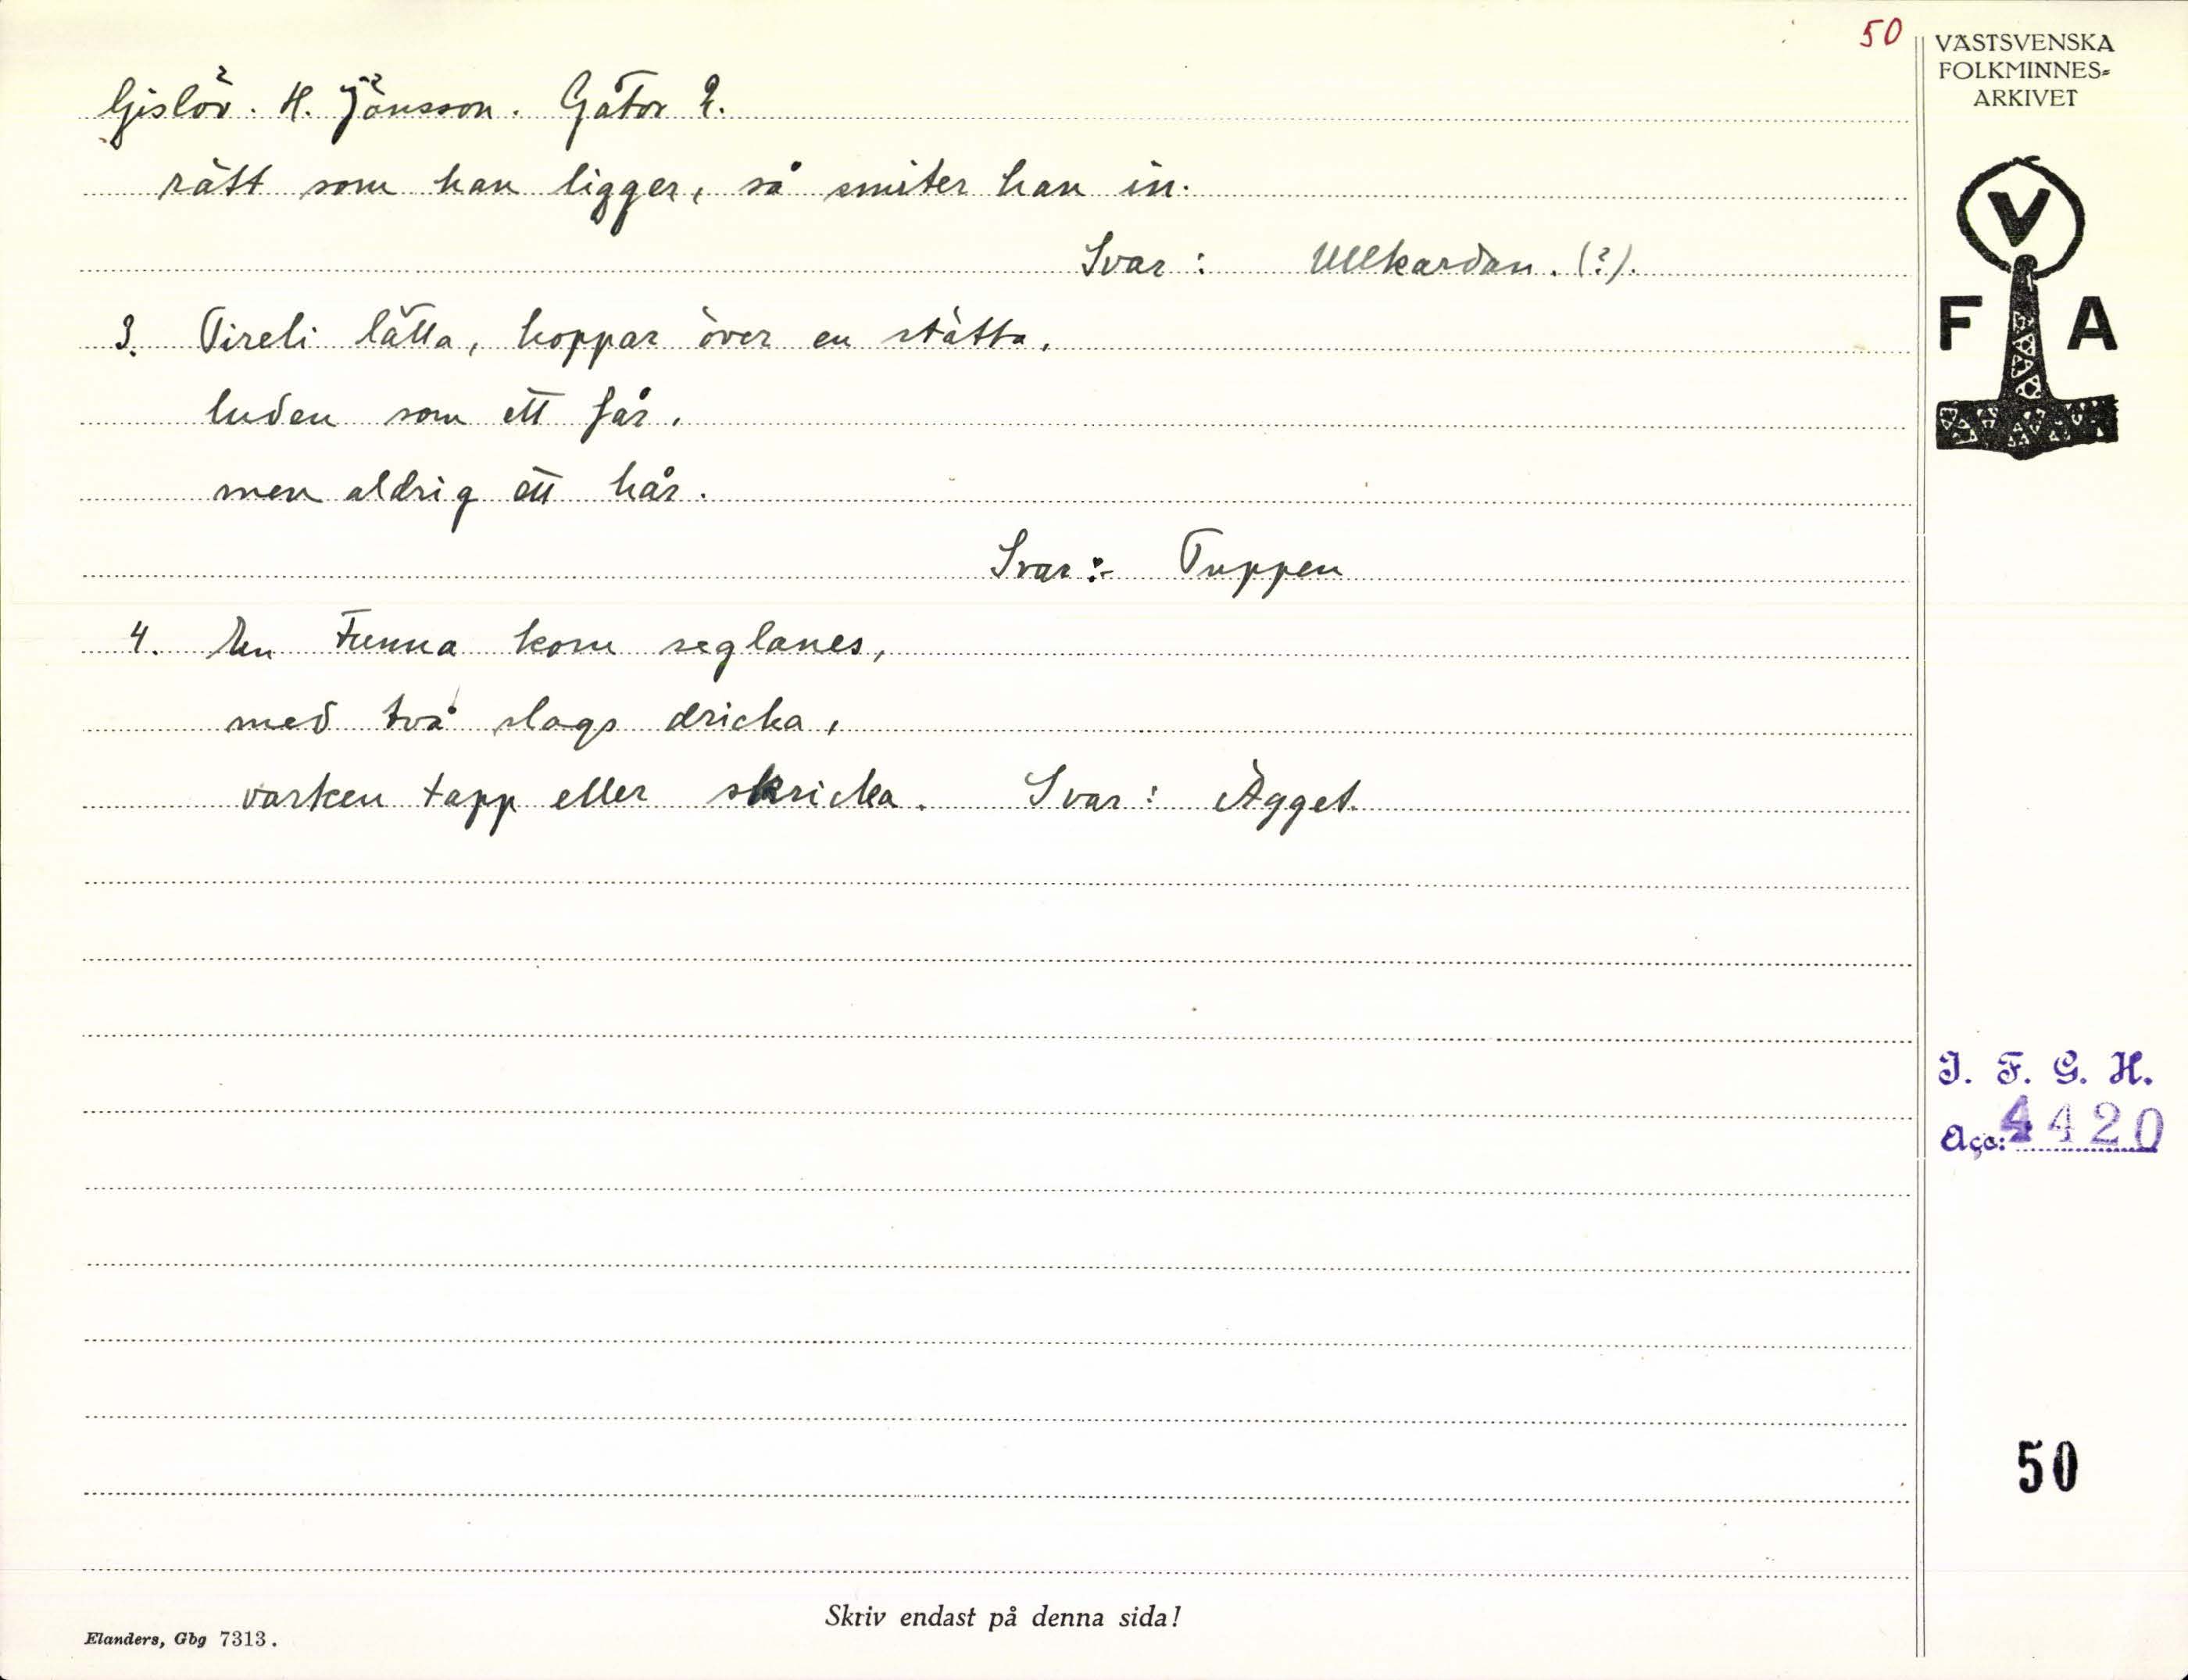 50
VÄSTSVENSKA
FOLKMINNES=
ARKIVET
Gislöv. H. Jönsson. Gåtor 2.
rätt som han ligger, så smiter han in.
Svar: Ullkardan. (?).
3. Tireli lätta, hoppar över en stätta,
luden som ett får,
men aldrig ett hår.
Svar:- Tuppen
4. En tunna kom seglanes,
med två slags dricka,
varken tapp eller skricka. Svar: Ägget.
V
F A
I. F. G. H.
Acc: 4420
50
Skriv endast på denna sida!
Elanders, Gbg 7313.